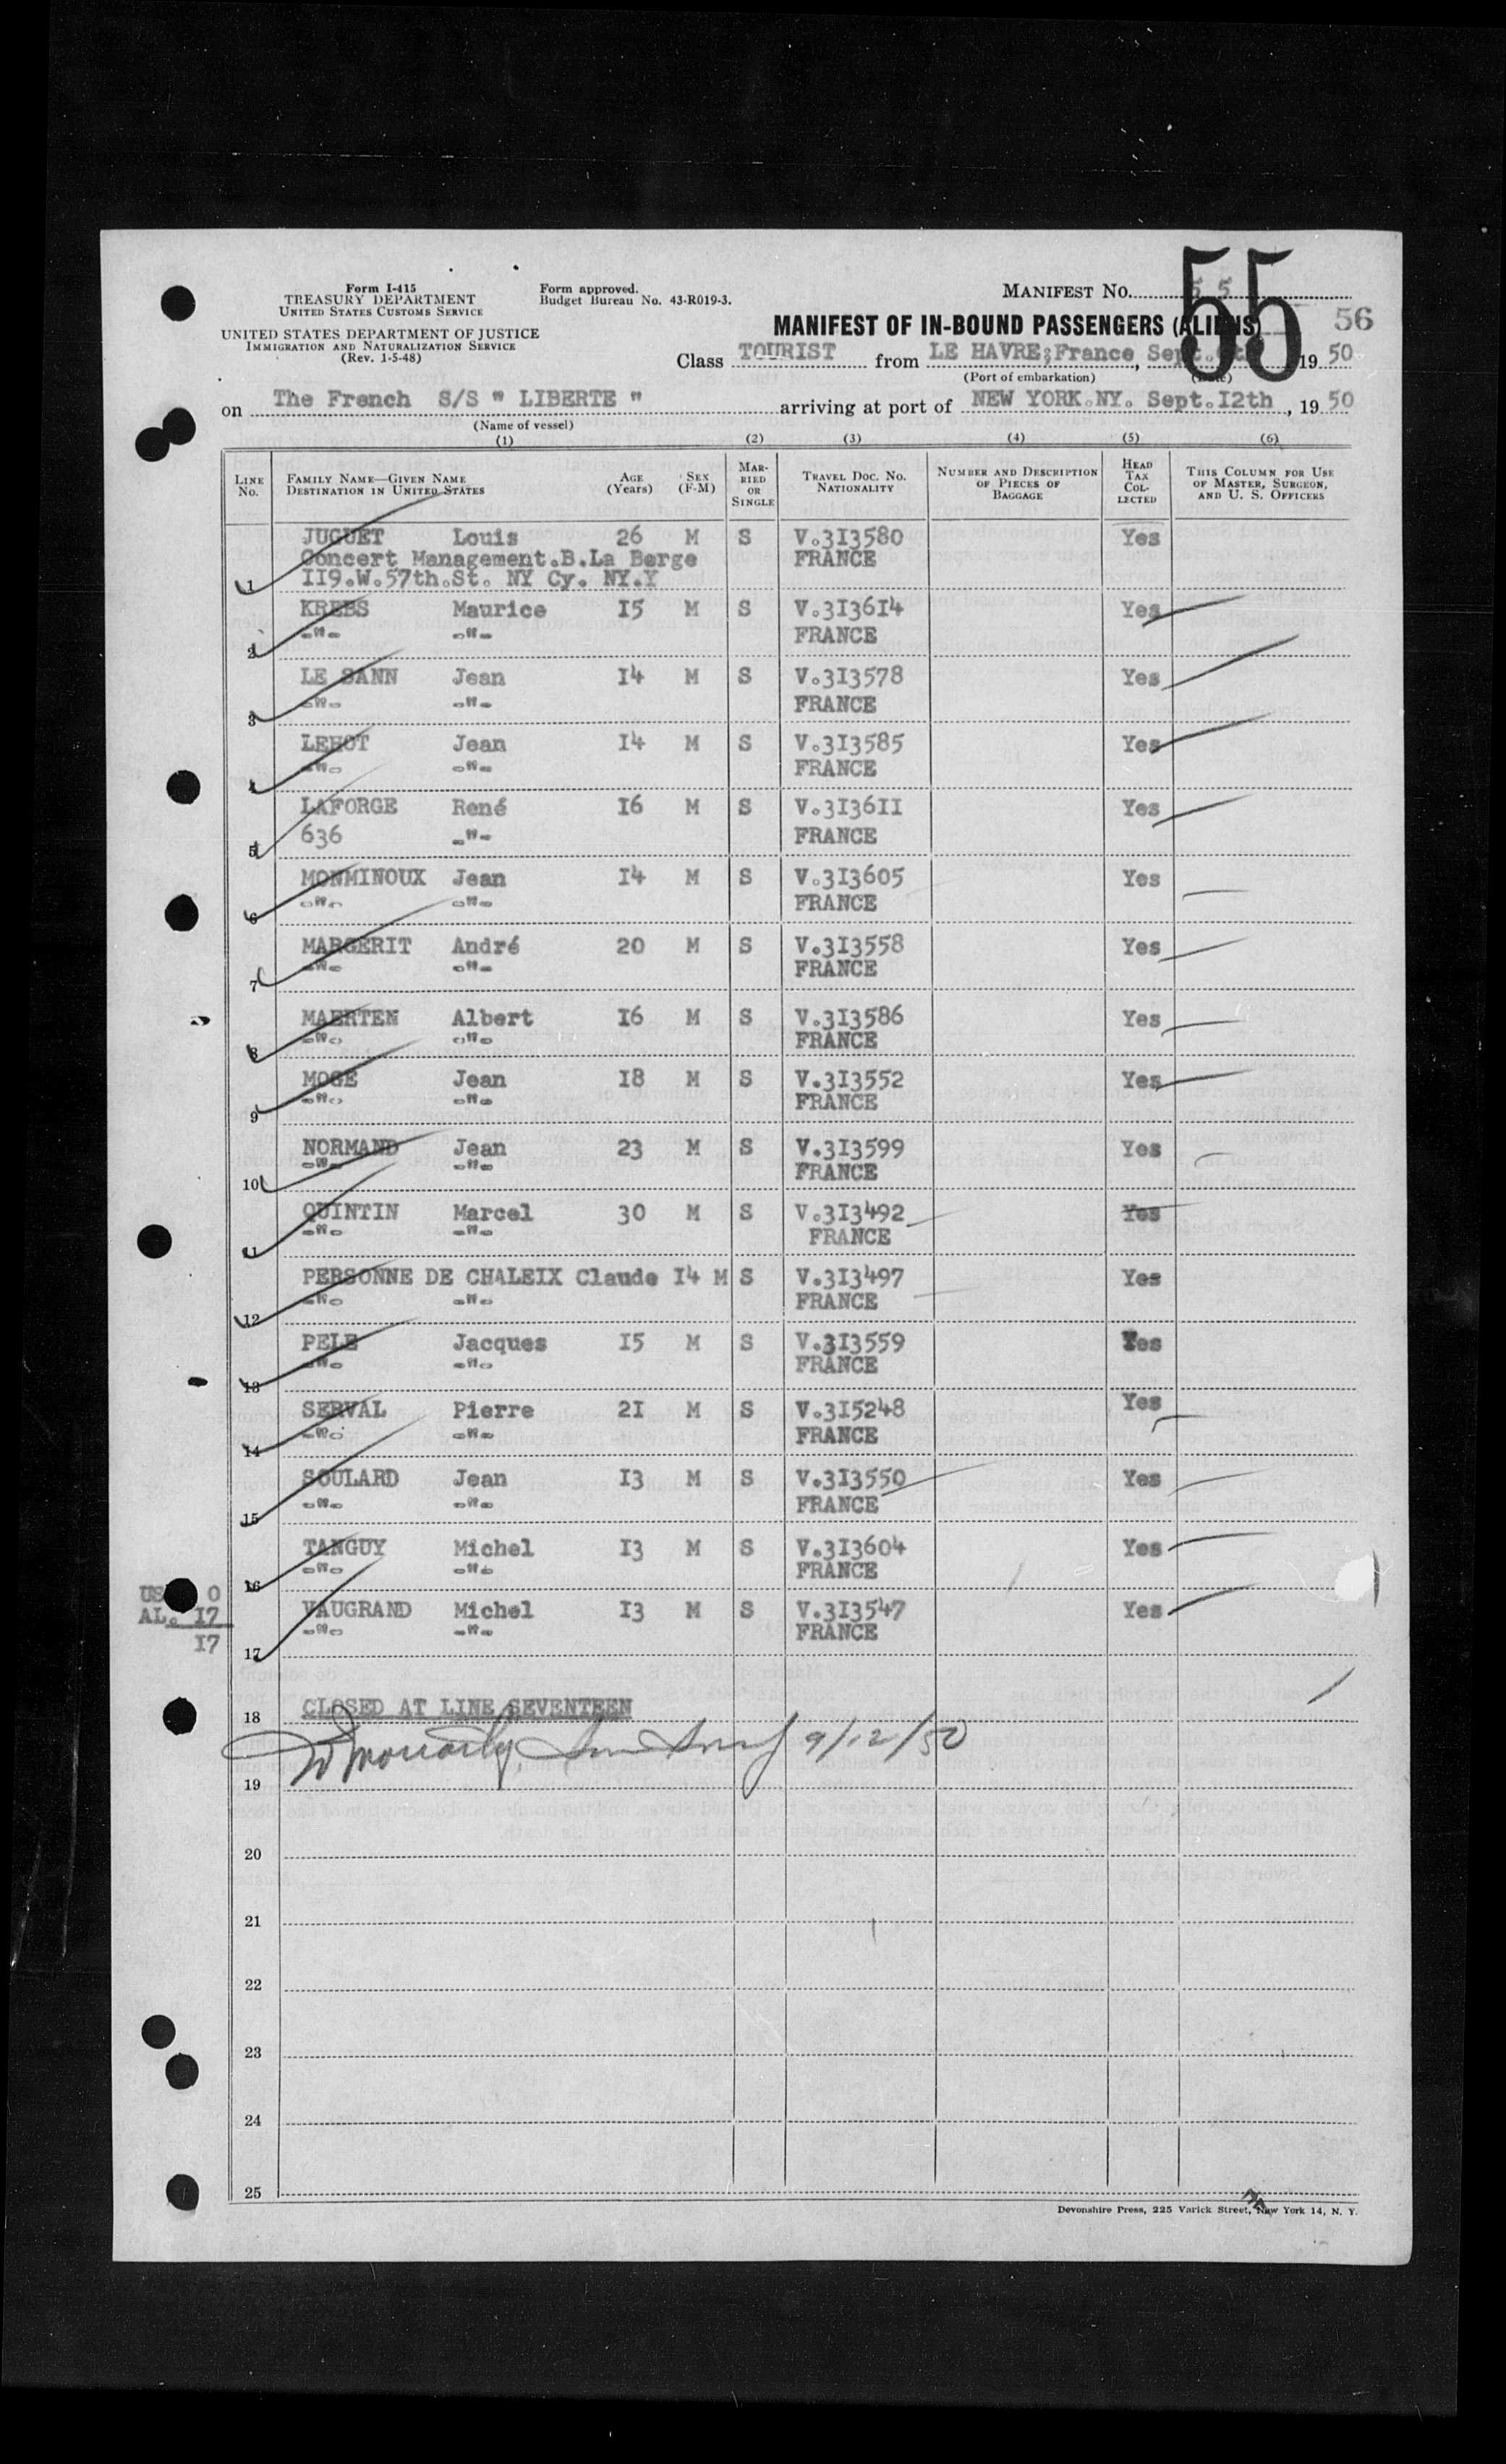 Form I-415
TREASURY DEPARTMENT
UNITED STATES CUSTOMS SERVICE
UNITED STATES DEPARTMENT OF JUSTICE
IMMIGRATION AND NATURALIZATION SERVICE
(Rev. 1-5-48)
Form approved.
Budget Bureau No. 43-R019-3.
MANIFEST No. 55
55
56
MANIFEST OF IN-BOUND PASSENGERS (ALIENS)
Class TOURIST from LE HAVRE;France, Sept. 1950
(Port of embarkation) (Date)
on The French S/S " LIBERTE " arriving at port of NEW YORK.NY. Sept.I2th, 1950
(Name of vessel)
(1) (2) (3) (4) (5) (6)
LINE No. FAMILY NAME—GIVEN NAME DESTINATION IN UNITED STATES AGE (Years) SEX (F-M) MARRIED OR SINGLE TRAVEL DOC. NO. NATIONALITY NUMBER AND DESCRIPTION OF PIECES OF BAGGAGE HEAD TAX COLLECTED THIS COLUMN FOR USE OF MASTER, SURGEON, AND U. S. OFFICERS
JUGUET Louis 26 M S V.3I3580 Yes
Concert Management.B.La Berge FRANCE
1 II9.W.57th.St. NY Cy. NY.Y
KREBS Maurice I5 M S V.3I36I4 Yes
2 -"- -"- FRANCE
LE SANN Jean I4 M S V.3I3578 Yes
3 -"- -"- FRANCE
LEHOT Jean I4 M S V.3I3585 Yes
4 -"- -"- FRANCE
LAFORGE René I6 M S V.3I36II Yes
5 636 -"- FRANCE
MONMINOUX Jean I4 M S V.3I3605 Yes
6 -"- -"- FRANCE
MARGERIT André 20 M S V.3I3558 Yes
7 -"- -"- FRANCE
MAERTEN Albert I6 M S V.3I3586 Yes
8 -"- -"- FRANCE
MOGE Jean I8 M S V.3I3552 Yes
9 -"- -"- FRANCE
NORMAND Jean 23 M S V.3I3599 Yes
10 -"- -"- FRANCE
QUINTIN Marcel 30 M S V.3I3492 Yes
11 -"- -"- FRANCE
PERSONNE DE CHALEIX Claude I4 M S V.3I3497 Yes
12 -"- -"- FRANCE
PELE Jacques I5 M S V.3I3559 Yes
13 -"- -"- FRANCE
SERVAL Pierre 2I M S V.3I5248 Yes
14 -"- -"- FRANCE
SOULARD Jean I3 M S V.3I3550 Yes
15 -"- -"- FRANCE
TANGUY Michel I3 M S V.3I3604 Yes
16 -"- -"- FRANCE
US 0
AL. I7
I7
VAUGRAND Michel I3 M S V.3I3547 Yes
17 -"- -"- FRANCE
18 CLOSED AT LINE SEVENTEEN
9/12/50
19
20
21
22
23
24
25
Devonshire Press, 225 Varick Street, New York 14, N. Y.